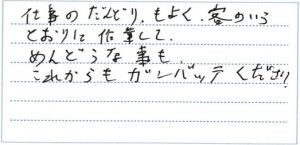 仕事のだんどり.もよく.客のいう
とおりに作業して.
めんどうな事も.
これからもガンバッテください